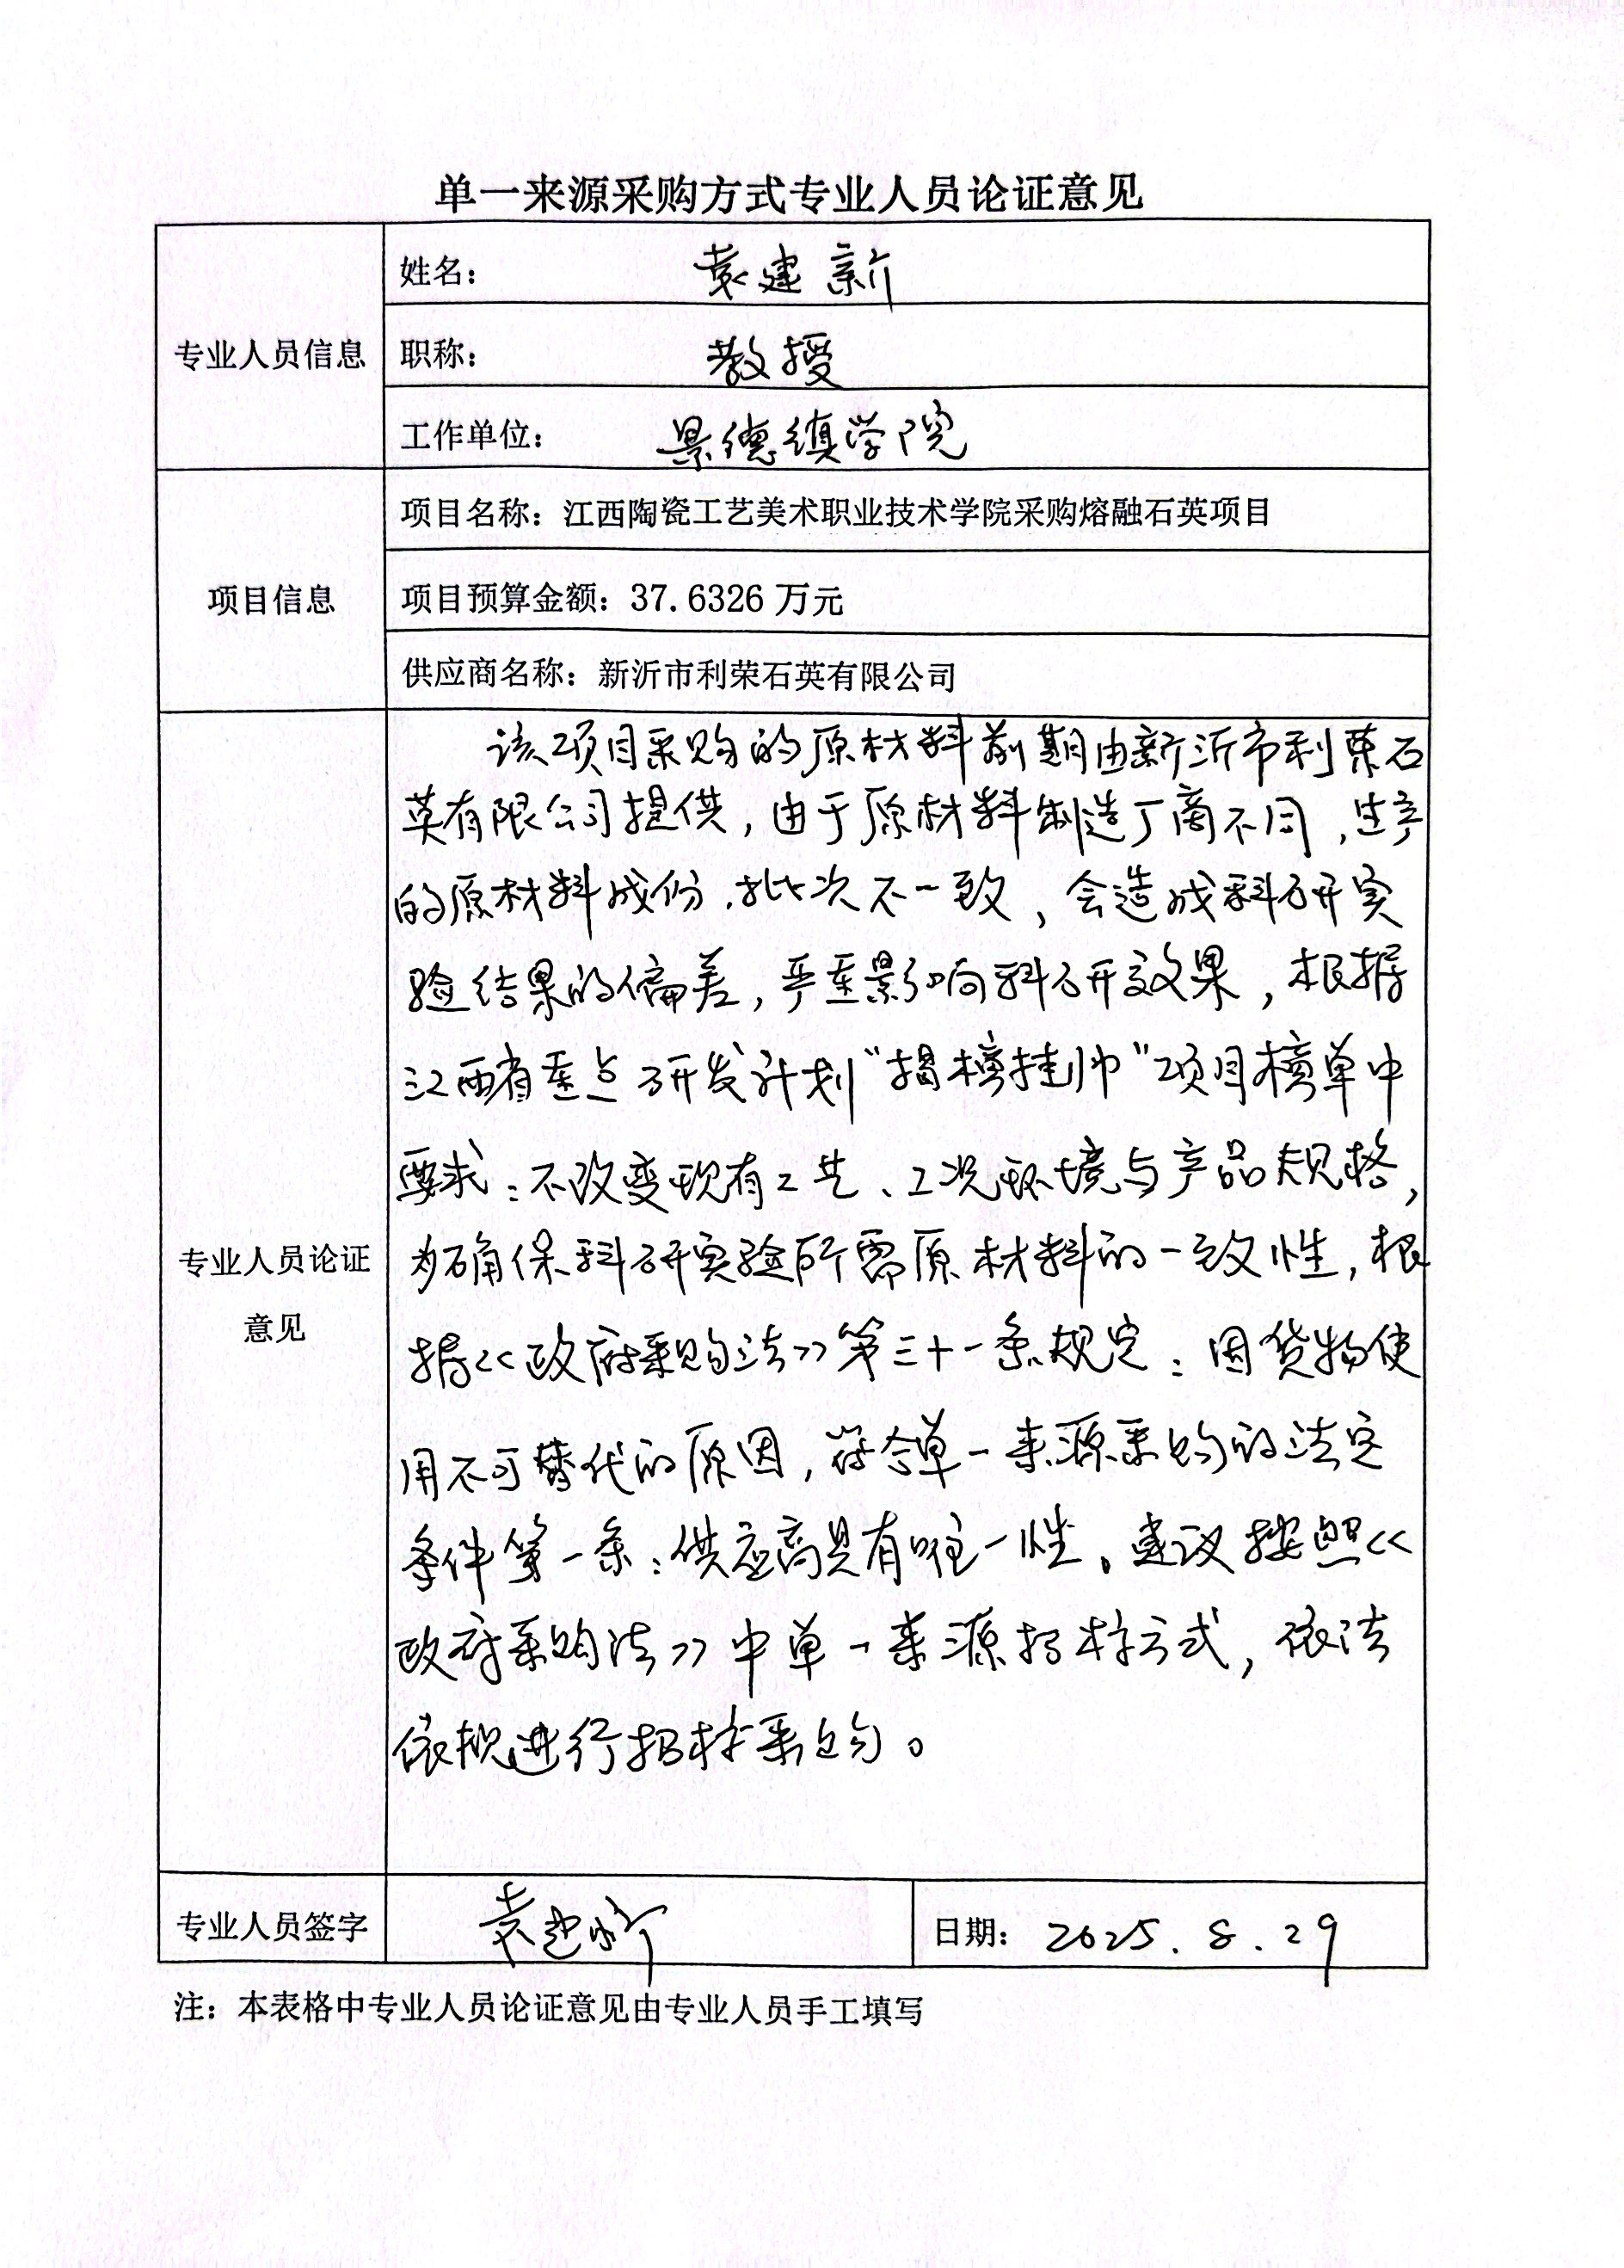 单一来源采购方式专业人员论证意见
专业人员信息
姓名： 袁建新
职称： 教授
工作单位： 景德镇学院
项目信息
项目名称：江西陶瓷工艺美术职业技术学院采购熔融石英项目
项目预算金额：37.6326 万元
供应商名称：新沂市利荣石英有限公司
专业人员论证
意见
该项目采购的原材料前期由新沂市利荣石
英有限公司提供，由于原材料制造厂商不同，生产
的原材料成份、批次不一致，会造成科研实
验结果的偏差，严重影响科研效果，根据
江西省重点研发计划“揭榜挂帅”项目榜单中
要求：不改变现有工艺、工况环境与产品规格，
为确保科研实验所需原材料的一致性，根
据<<政府采购法>>第三十一条规定：因货物使
用不可替代的原因，符合单一来源采购的法定
条件第一条：供应商具有唯一性。建议按照<<
政府采购法>>中单一来源招标方式，依法
依规进行招标采购。
专业人员签字
袁建新
日期： 2025.8.29
注：本表格中专业人员论证意见由专业人员手工填写